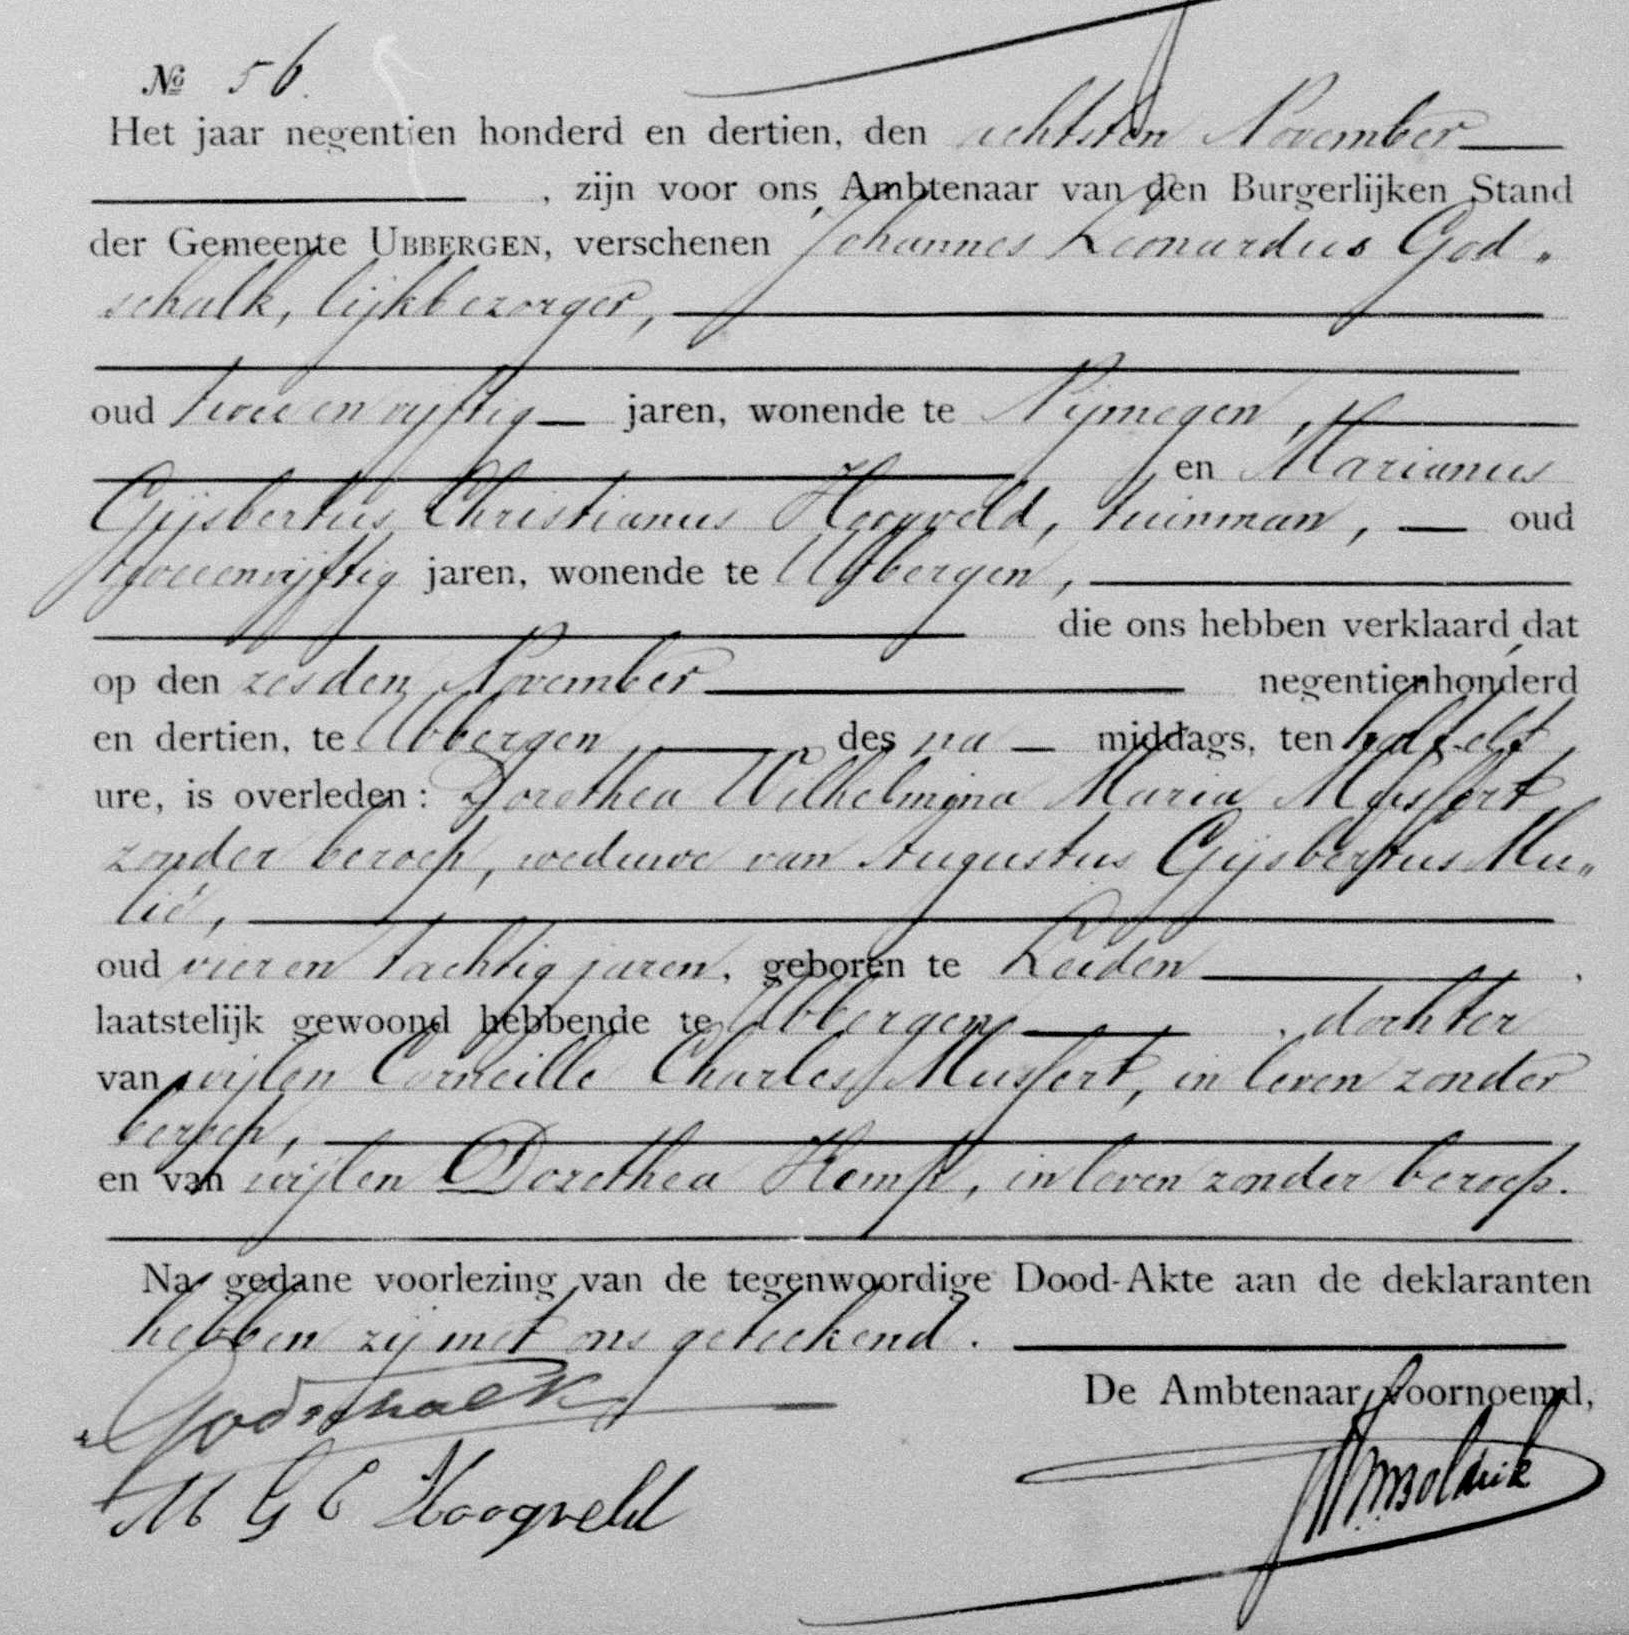 № 56.
Het jaar negentien honderd en dertien, den achtsten November
, zijn voor ons Ambtenaar van den Burgerlijken Stand
der Gemeente UBBERGEN, verschenen Johannes Leonardus God„
schalk, lijkbezorger,
oud twee en vijftig jaren, wonende te Nijmegen,
en Marianus
Gijsbertus Christianus Hoogveld, tuinman, oud
tweeenvijftig jaren, wonende te Ubbergen,
die ons hebben verklaard, dat
op den zesden November negentienhonderd
en dertien, te Ubbergen, des na middags, ten half elf
ure, is overleden: Dorothea Wilhelmina Maria Mussert
zonder beroep, weduwe van Augustus Gijsbertus Mu„
lié,
oud vier en tachtig jaren, geboren te Leiden,
laatstelijk gewoond hebbende te Ubbergen, dochter
van wijlen Corneille Charles Mussert, in leven zonder
beroep,
en van wijlen Dorothea Kemp, in leven zonder beroep.
Na gedane voorlezing van de tegenwoordige Dood-Akte aan de deklaranten
hebben zij met ons geteekend.
De Ambtenaar voornoemd,
Godschalk
M G C Hoogveld